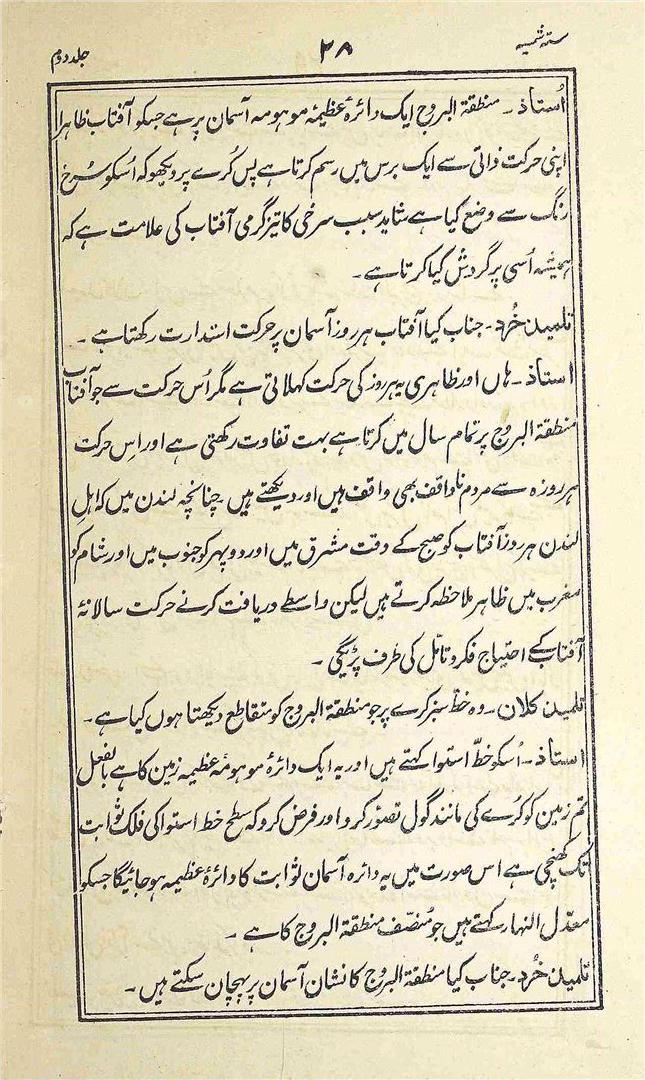 ستہ شمسیہ ۲۸ جلد دوم
اُستاذ ۔ منطقۃ البروج ایک دائرہ عظیمۂ موہومہ آسمان پر ہے جسکو آفتاب ظاہرا
اپنی حرکت ذاتی سے ایک برس میں رسم کرتا ہے پس کُرے پر دیکھو کہ اُسکو سُرخ
رنگ سے وضع کیا ہے شاید سبب سرخی کا تیز گرمی آفتاب کی علامت ہے کہ
ہمیشہ اُسی پر گردش کیا کرتا ہے ۔
تلمیذ خُرد ۔ جناب کیا آفتاب ہر روز آسمان پر حرکت استدارت رکھتا ہے ۔
استاذ ۔ ہاں اور ظاہری یہ ہر روز کی حرکت کہلاتی ہے مگر اُس حرکت سے جو آفتاب
منطقۃ البروج پر تمام سال میں کرتا ہے بہت تفاوت رکھتی ہے اور اِس حرکت
ہر روزہ سے مردم ناواقف بھی واقف ہیں اور دیکھتے ہیں چنانچہ لندن میں کہ اہلِ
لندن ہر روز آفتاب کو صبح کے وقت مشرق میں اور دوپہر کو جنوب میں اور شام کو
مغرب میں ظاہر ملاحظہ کرتے ہیں لیکن واسطے دریافت کرنے حرکت سالانۂ
آفتاب کے احتیاج فکر و تامّل کی طرف پڑیگی ۔
تلمیذ کلان ۔ وہ خطّ سبز کرے پر جو منطقۃ البروج کو متقاطع دیکھتا ہوں کیا ہے ۔
استاذ ۔ اُسکو خطّ استوا کہتے ہیں اور یہ ایک دائرۂ موہومہ عظیمہ زمین کا ہے بالفعل
تم زمین کو کُرے کی مانند گول تصوّر کرو اور فرض کرو کہ سطح خط استوا کی فلک ثوابت
تک کھنچی ہے اس صورت میں یہ دائرہ آسمان ثوابت کا دائرۂ عظیمہ ہو جائیگا جسکو
معدّل النہار کہتے ہیں جو مُنصّف منطقۃ البروج کا ہے ۔
تلمیذ خُرد ۔ جناب کیا منطقۃ البروج کا نشان آسمان پر پہچان سکتے ہیں ۔